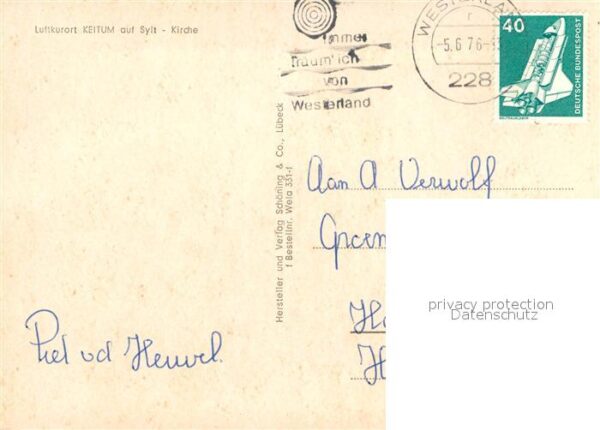 Luftkurort KEITUM auf Sylt - Kirche
Immer
träum' ich
von
Westerland
-5.6.76-
228
40
DEUTSCHE BUNDESPOST
Hersteller und Verlag Schöning & Co., Lübeck
Bestellnr. Weta 331-f
Aan A Verwolf
Piet vd Heuvel.
privacy protection
Datenschutz